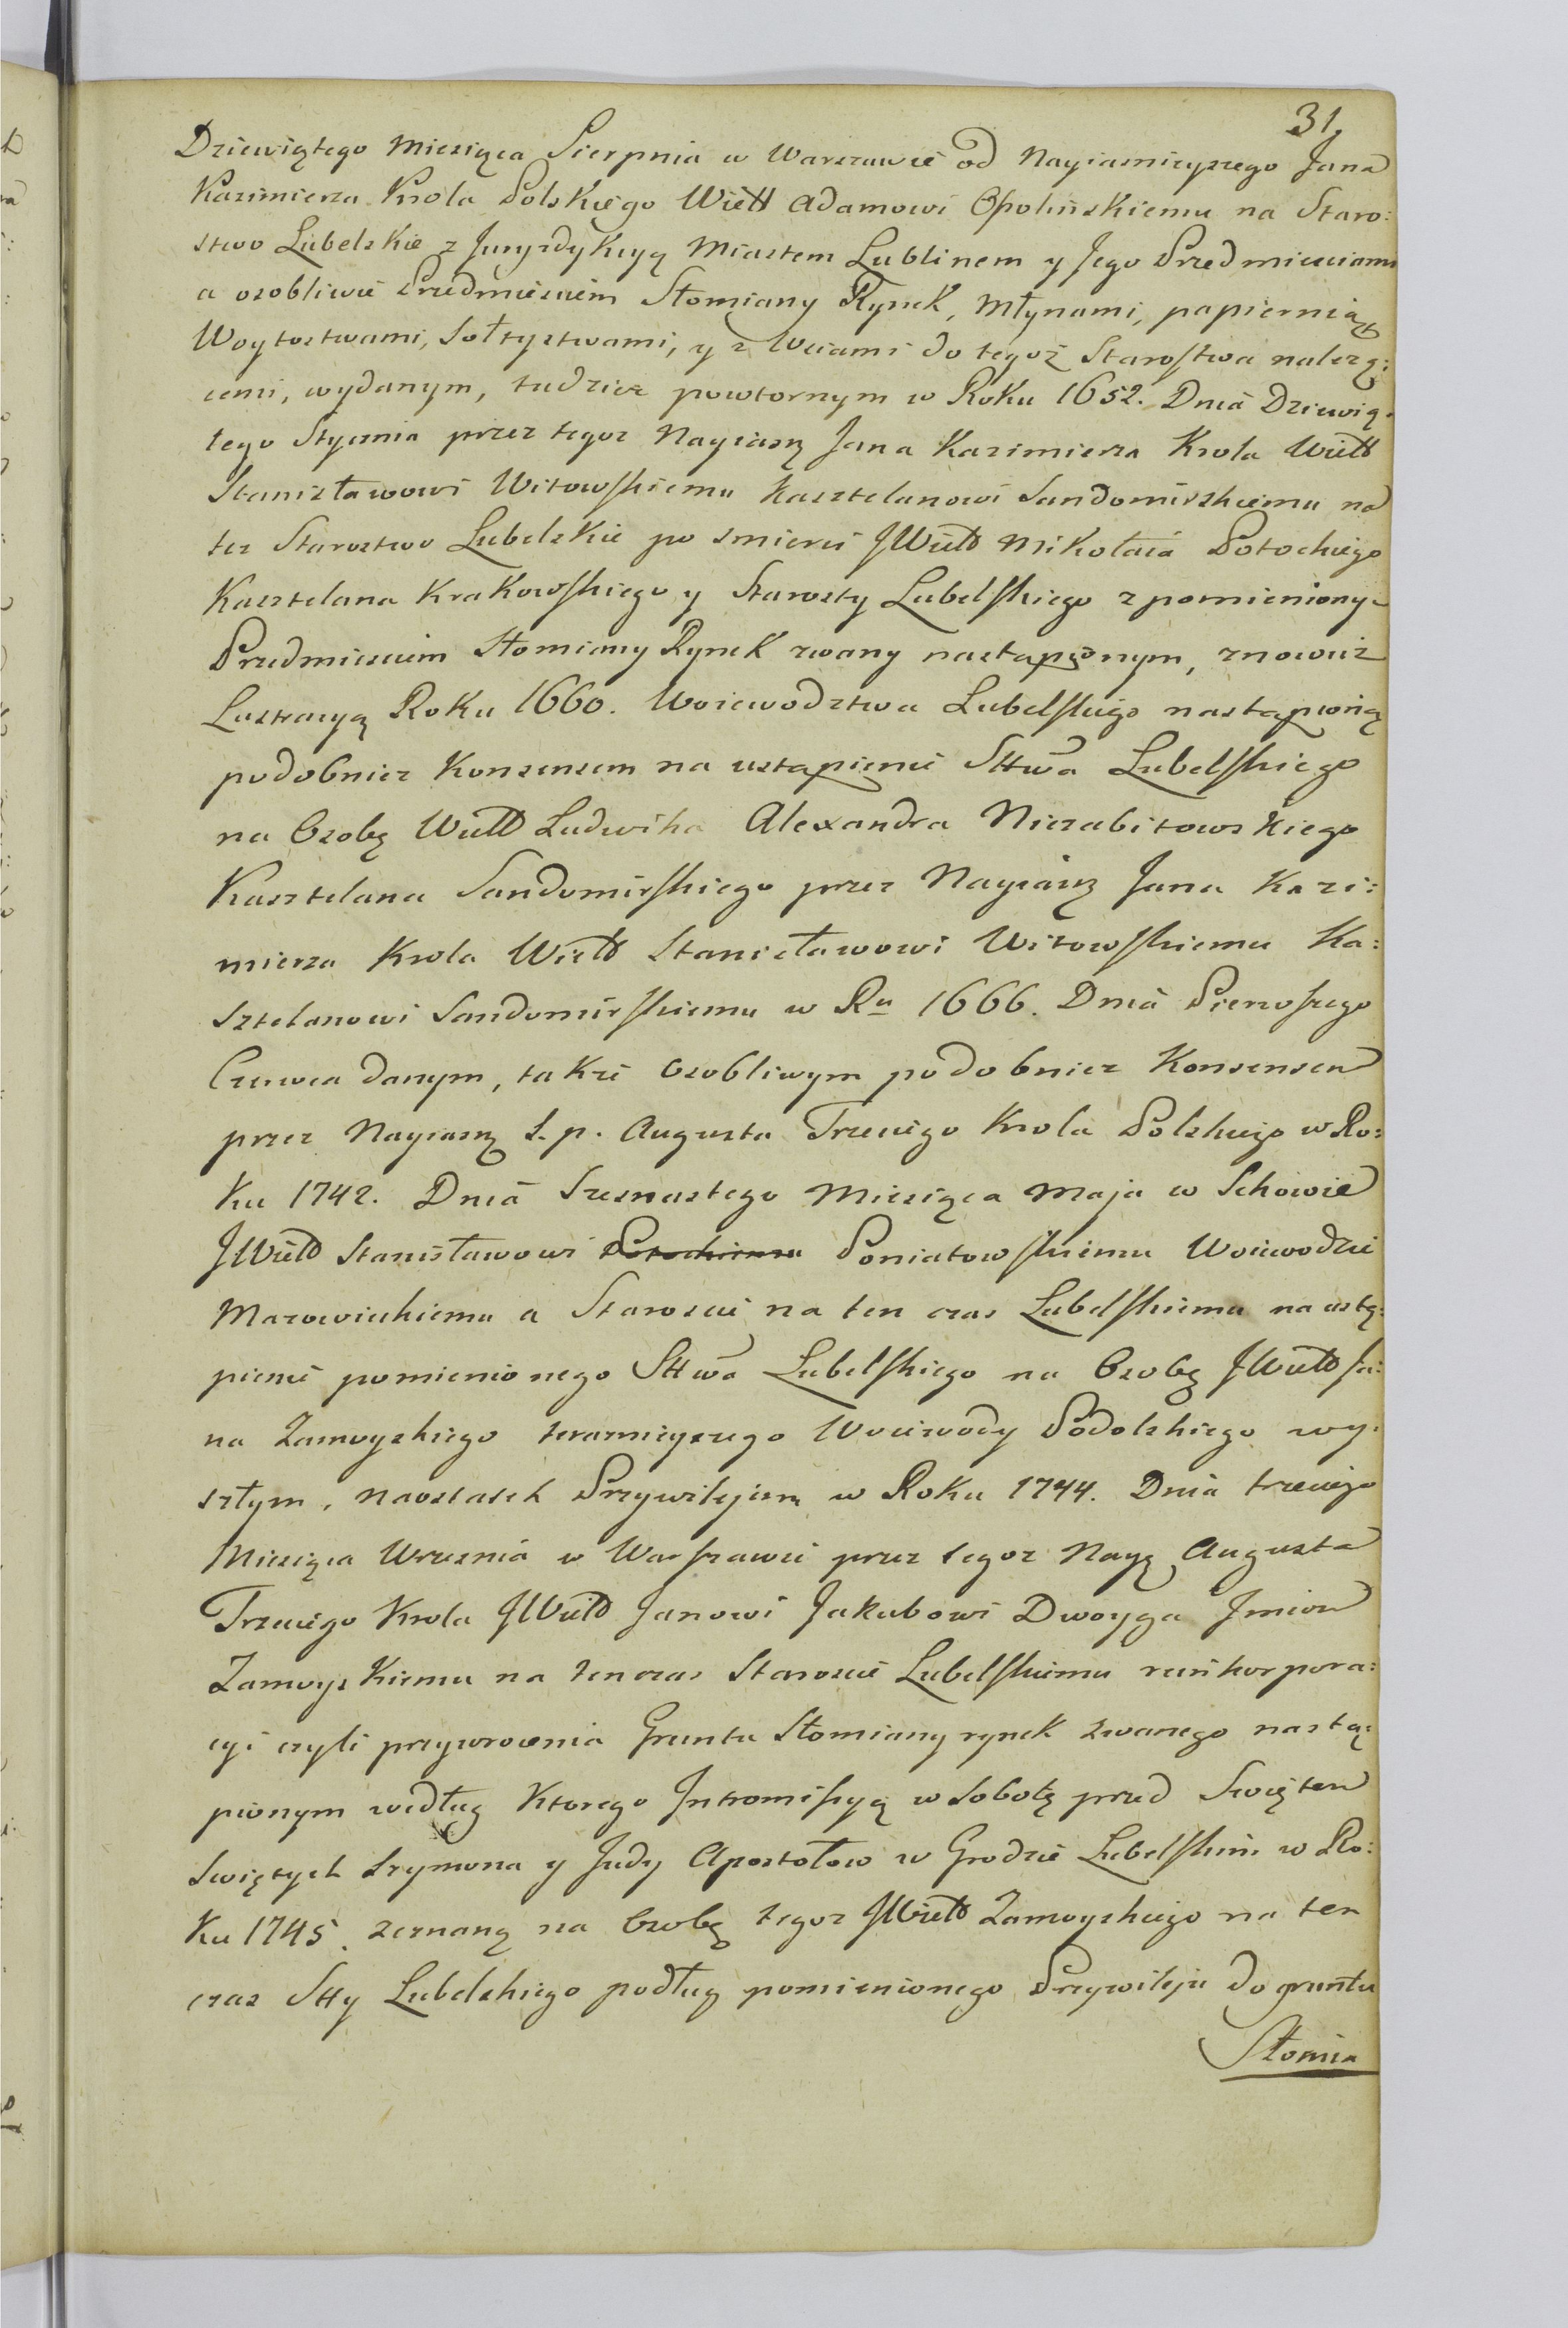 31.
Dziewiątego Miesiąca Sierpnia w Warszawie od Nayiasnieyszego Jana
Kazimierza Krola Polskiego Wiełł Adamowi Opolińskiemu na Staro:
stwo Lubelskie z Juryzdykcyą Miastem Lublinem y Jego Przedmiesciami
a osobliwie Przedmiesciem Słomiany Rynek, Młynami, papiernią
Woytostwami, Sołtystwami, y z Wsiami do tegoż Starostwa należą:
cemi, wydanym, tudziez powtornym w Roku 1652. Dnia Dziewią:
tego Stycznia przez tegoz Nayiasz Jana Kazimierza Krola Wiełł
Stanisławowi Witowskiemu Kasztelanowi Sandomirskiemu na
tez Starostwo Lubelskie po smierci JWiełł Mikołaia Potockiego
Kasztelana Krakowskiego y Starosty Lubelskiego z pomieniony
Przedmiesciem Słomiany Rynek zwany nastąpionym, znowuż
Lustracyą Roku 1660. Woiewodztwa Lubelskiego nastąpioną
podobniez Konsensem na ustąpienie Sttwa Lubelskiego
na Osobę Wiełł Ludwika Alexandra Niezabitowskiego
Kasztelana Sandomirskiego przez Nayiasz Jana Kazi:
mierza Krola Wiełł Stanisławowi Witowskiemu Ka:
sztelanowi Sandomirskiemu w Ru 1666. Dnia Pierwszego
Czerwca danym, także Osobliwym podobniez Konsensem
przez Nayiasz S. p. Augusta Trzeciego Krola Polskiego w Ro:
ku 1742. Dnia Szesnastego Miesiąca Maja w Schowie
JWiełł Stanisławowi Potockiemu Poniatowskiemu Woiewodzie
Mazowieckiemu a Staroscie na ten czas Lubelskiemu na ustą:
pienie pomienionego Sttwa Lubelskiego na Osobę JWiełł Ja:
na Zamoyskiego teraznieyszego Woiewody Podolskiego wy:
szłym, naostatek Przywilejem w Roku 1744. Dnia trzeciego
Miesiąca Wrzesnia w Warszawie przez tegoz Nayę Augusta
Trzeciego Krola JWiełł Janowi Jakubowi Dwoyga Jmion
Zamoyskiemu na tenczas Staroscie Lubelskiemu reinkorpora:
cyi czyli przywrocenia Gruntu Słomiany rynek zwanego nastą:
pionym według Ktorego Jntromissyą w Sobotę przed Swiętem
Swiętych Szymona y Judy Apostołow w Grodzie Lubelskim w Ro:
ku 1745. zeznaną na Osobę tegoz JWiełł Zamoyskiego na ten
czas Stty Lubelskiego podług pomienionego Przywileju do gruntu
Słomia